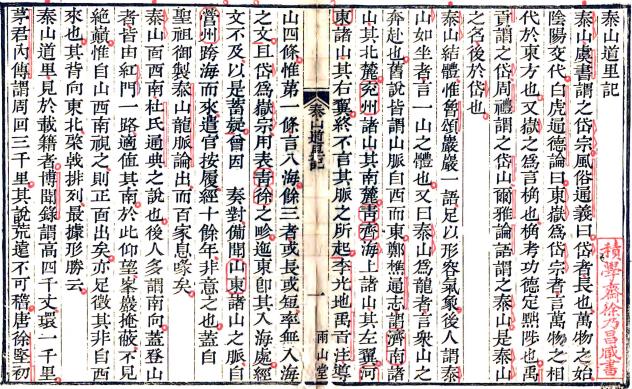 泰山道里記
泰山虞書謂之岱宗風俗通義曰岱者長也萬物之始
陰陽交代白虎通德論曰東嶽為岱宗者言萬物之相
代於東方也又嶽之為言桷也桷考功德定黜陟也禹
貢謂之岱周禮謂之岱山爾雅論語謂之泰山是泰山
之名後於岱也
泰山結體惟魯頌巖巖一語足以形容氣象後人謂泰
山如坐者言一山之體也又曰泰山為龍者言衆山之
奔赴也舊說皆謂山脈自西而東鄭樵通志謂濟南諸
山其北麓兖州諸山其南麓青齊海上諸山其左翼河
東諸山其右翼終不言其脈之所起李光地禹貢注導
泰山道里記
一
雨山堂
山四條惟第一條言入海餘三者或長或短率無入海
之文且岱為嶽宗用表青徐之畛迤東卽其入海處經
文不及以是蓄疑曾因
奏對備聞山東諸山之脈自
營州跨海而來遣官按履經十餘年非意之也蓋自
聖祖御製泰山龍脈論出而百家息喙矣
泰山面西南杜氏通典之說也後人多謂南向蓋登山
者皆由紅門一路適值其南於此仰望峯巖掩蔽不見
絶巔惟自山西南視之則正面出矣亦足徵其非自西
來也其背向東北衆嶽排列最據形勝云
泰山道里見於載籍者博聞錄謂高四千丈環一千里
茅君內傳謂周回三千里其說荒遠不可稽唐徐堅初
積學齋徐乃昌藏書